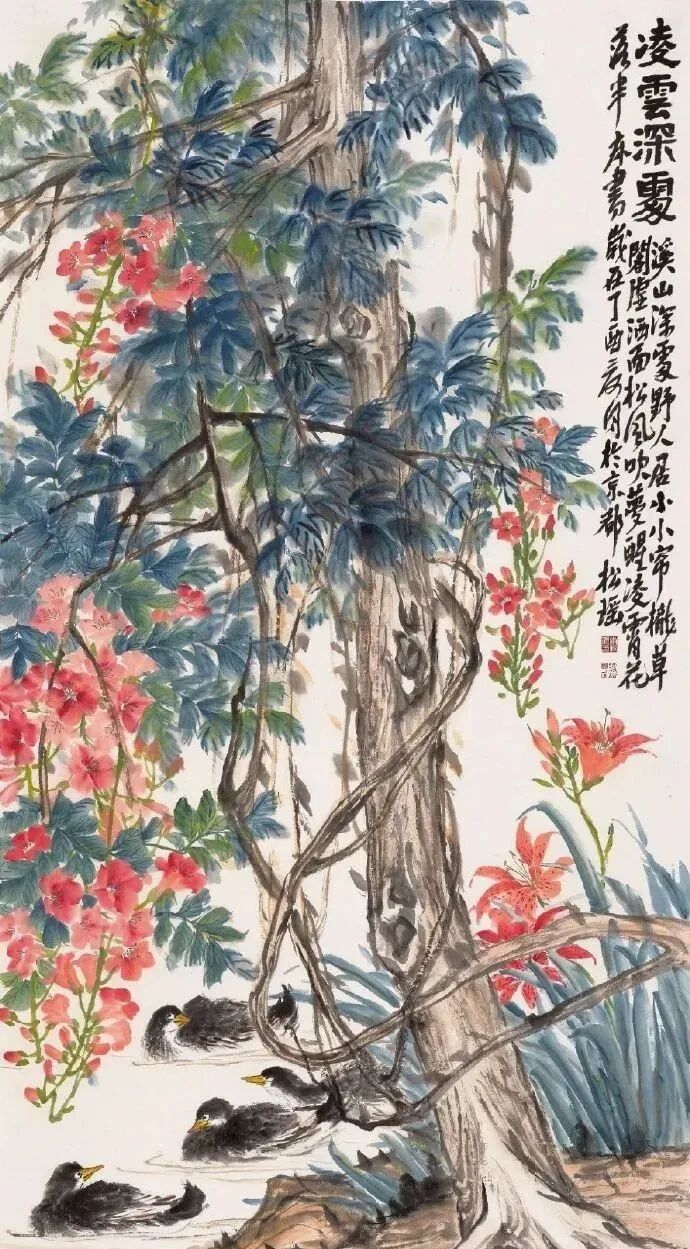 凌雲深處
溪山深處野人居小小帘櫳草
閣虛洒面松風吹夢醒凌霄花
落半床書歲在丁酉夏月於京都松瑶